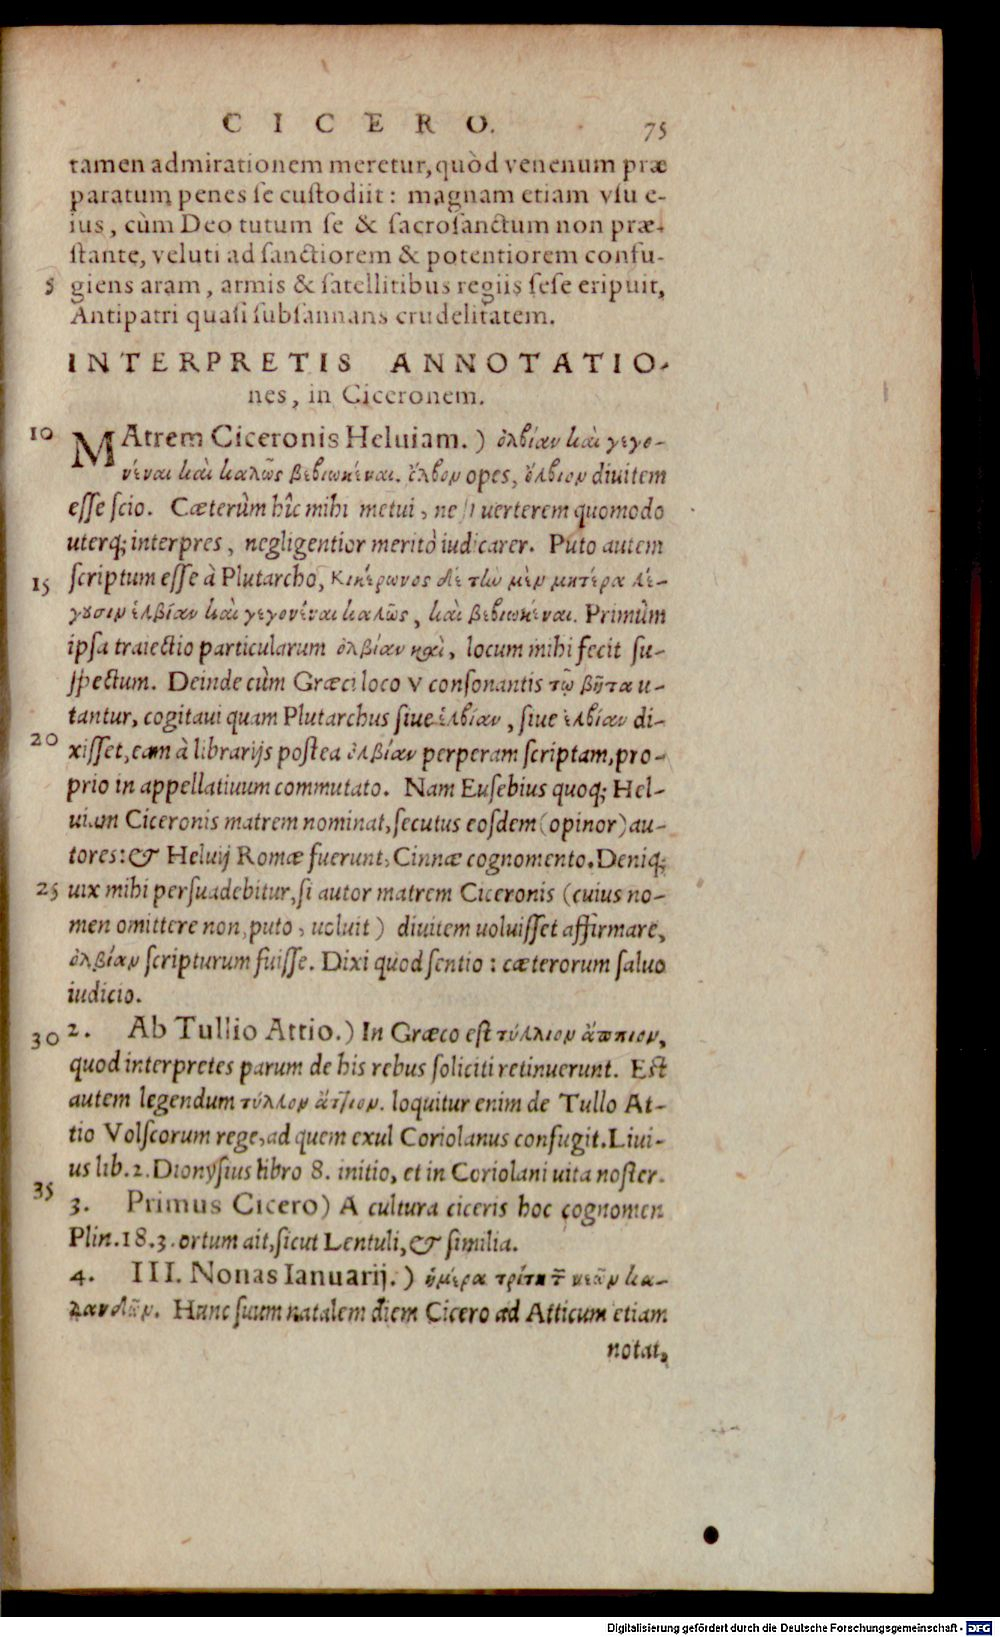 CICERO. 75
tamen admirationem meretur, quòd venenum præ
paratum penes se custodiit: magnam etiam vsu e-
ius, cùm Deo tutum se & sacrosanctum non præ-
stante, veluti ad sanctiorem & potentiorem confu-
5 giens aram, armis & satellitibus regiis sese eripuit,
Antipatri quasi subsannans crudelitatem.
INTERPRETIS ANNOTATIO-
nes, in Ciceronem.
10 MAtrem Ciceronis Heluiam.) ὀλβίαν καὶ γεγο-
νέναι καὶ καλῶς βεβιωκέναι. ὄλβον opes, ὄλβιον diuitem
esse scio. Cæterùm hîc mihi metui, ne si uerterem quomodo
uterq; interpres, negligentior meritò iudicarer. Puto autem
15 scriptum esse à Plutarcho, Κικέρωνος δὲ τὴν μὲν μητέρα λέ-
γουσιν ἑλβίαν καὶ γεγονέναι καλῶς, καὶ βεβιωκέναι. Primùm
ipsa traiectio particularum ὀλβίαν καὶ, locum mihi fecit su-
spectum. Deinde cùm Græci loco v consonantis τῷ βῆτα u-
tantur, cogitaui quam Plutarchus siue ἑλβίαν, siue ἐλβίαν di-
20 xisset, eam à librarijs postea ὀλβίαν perperam scriptam, pro-
prio in appellatiuum commutato. Nam Eusebius quoq; Hel-
uiam Ciceronis matrem nominat, secutus eosdem (opinor) au-
tores: & Heluij Romæ fuerunt, Cinnæ cognomento. Deniq;
25 uix mihi persuadebitur, si autor matrem Ciceronis (cuius no-
men omittere non, puto, uoluit) diuitem uoluisset affirmare,
ὀλβίαν scripturum fuisse. Dixi quod sentio: cæterorum saluo
iudicio.
30 2. Ab Tullio Attio.) In Græco est τύλλιον ἄππιον,
quod interpretes parum de his rebus soliciti retinuerunt. Est
autem legendum τύλλον ἄττιον. loquitur enim de Tullo At-
tio Volscorum rege, ad quem exul Coriolanus confugit. Liui-
us lib. 2. Dionysius libro 8. initio, et in Coriolani uita noster.
35 3. Primus Cicero) A cultura ciceris hoc cognomen
Plin. 18. 3. ortum ait, sicut Lentuli, & similia.
4. III. Nonas Ianuarij.) ἡμέρα τρίτη τ νεῶν κα-
λανδῶν. Hunc suum natalem diem Cicero ad Atticum etiam
notat,
Digitalisierung gefördert durch die Deutsche Forschungsgemeinschaft - DFG